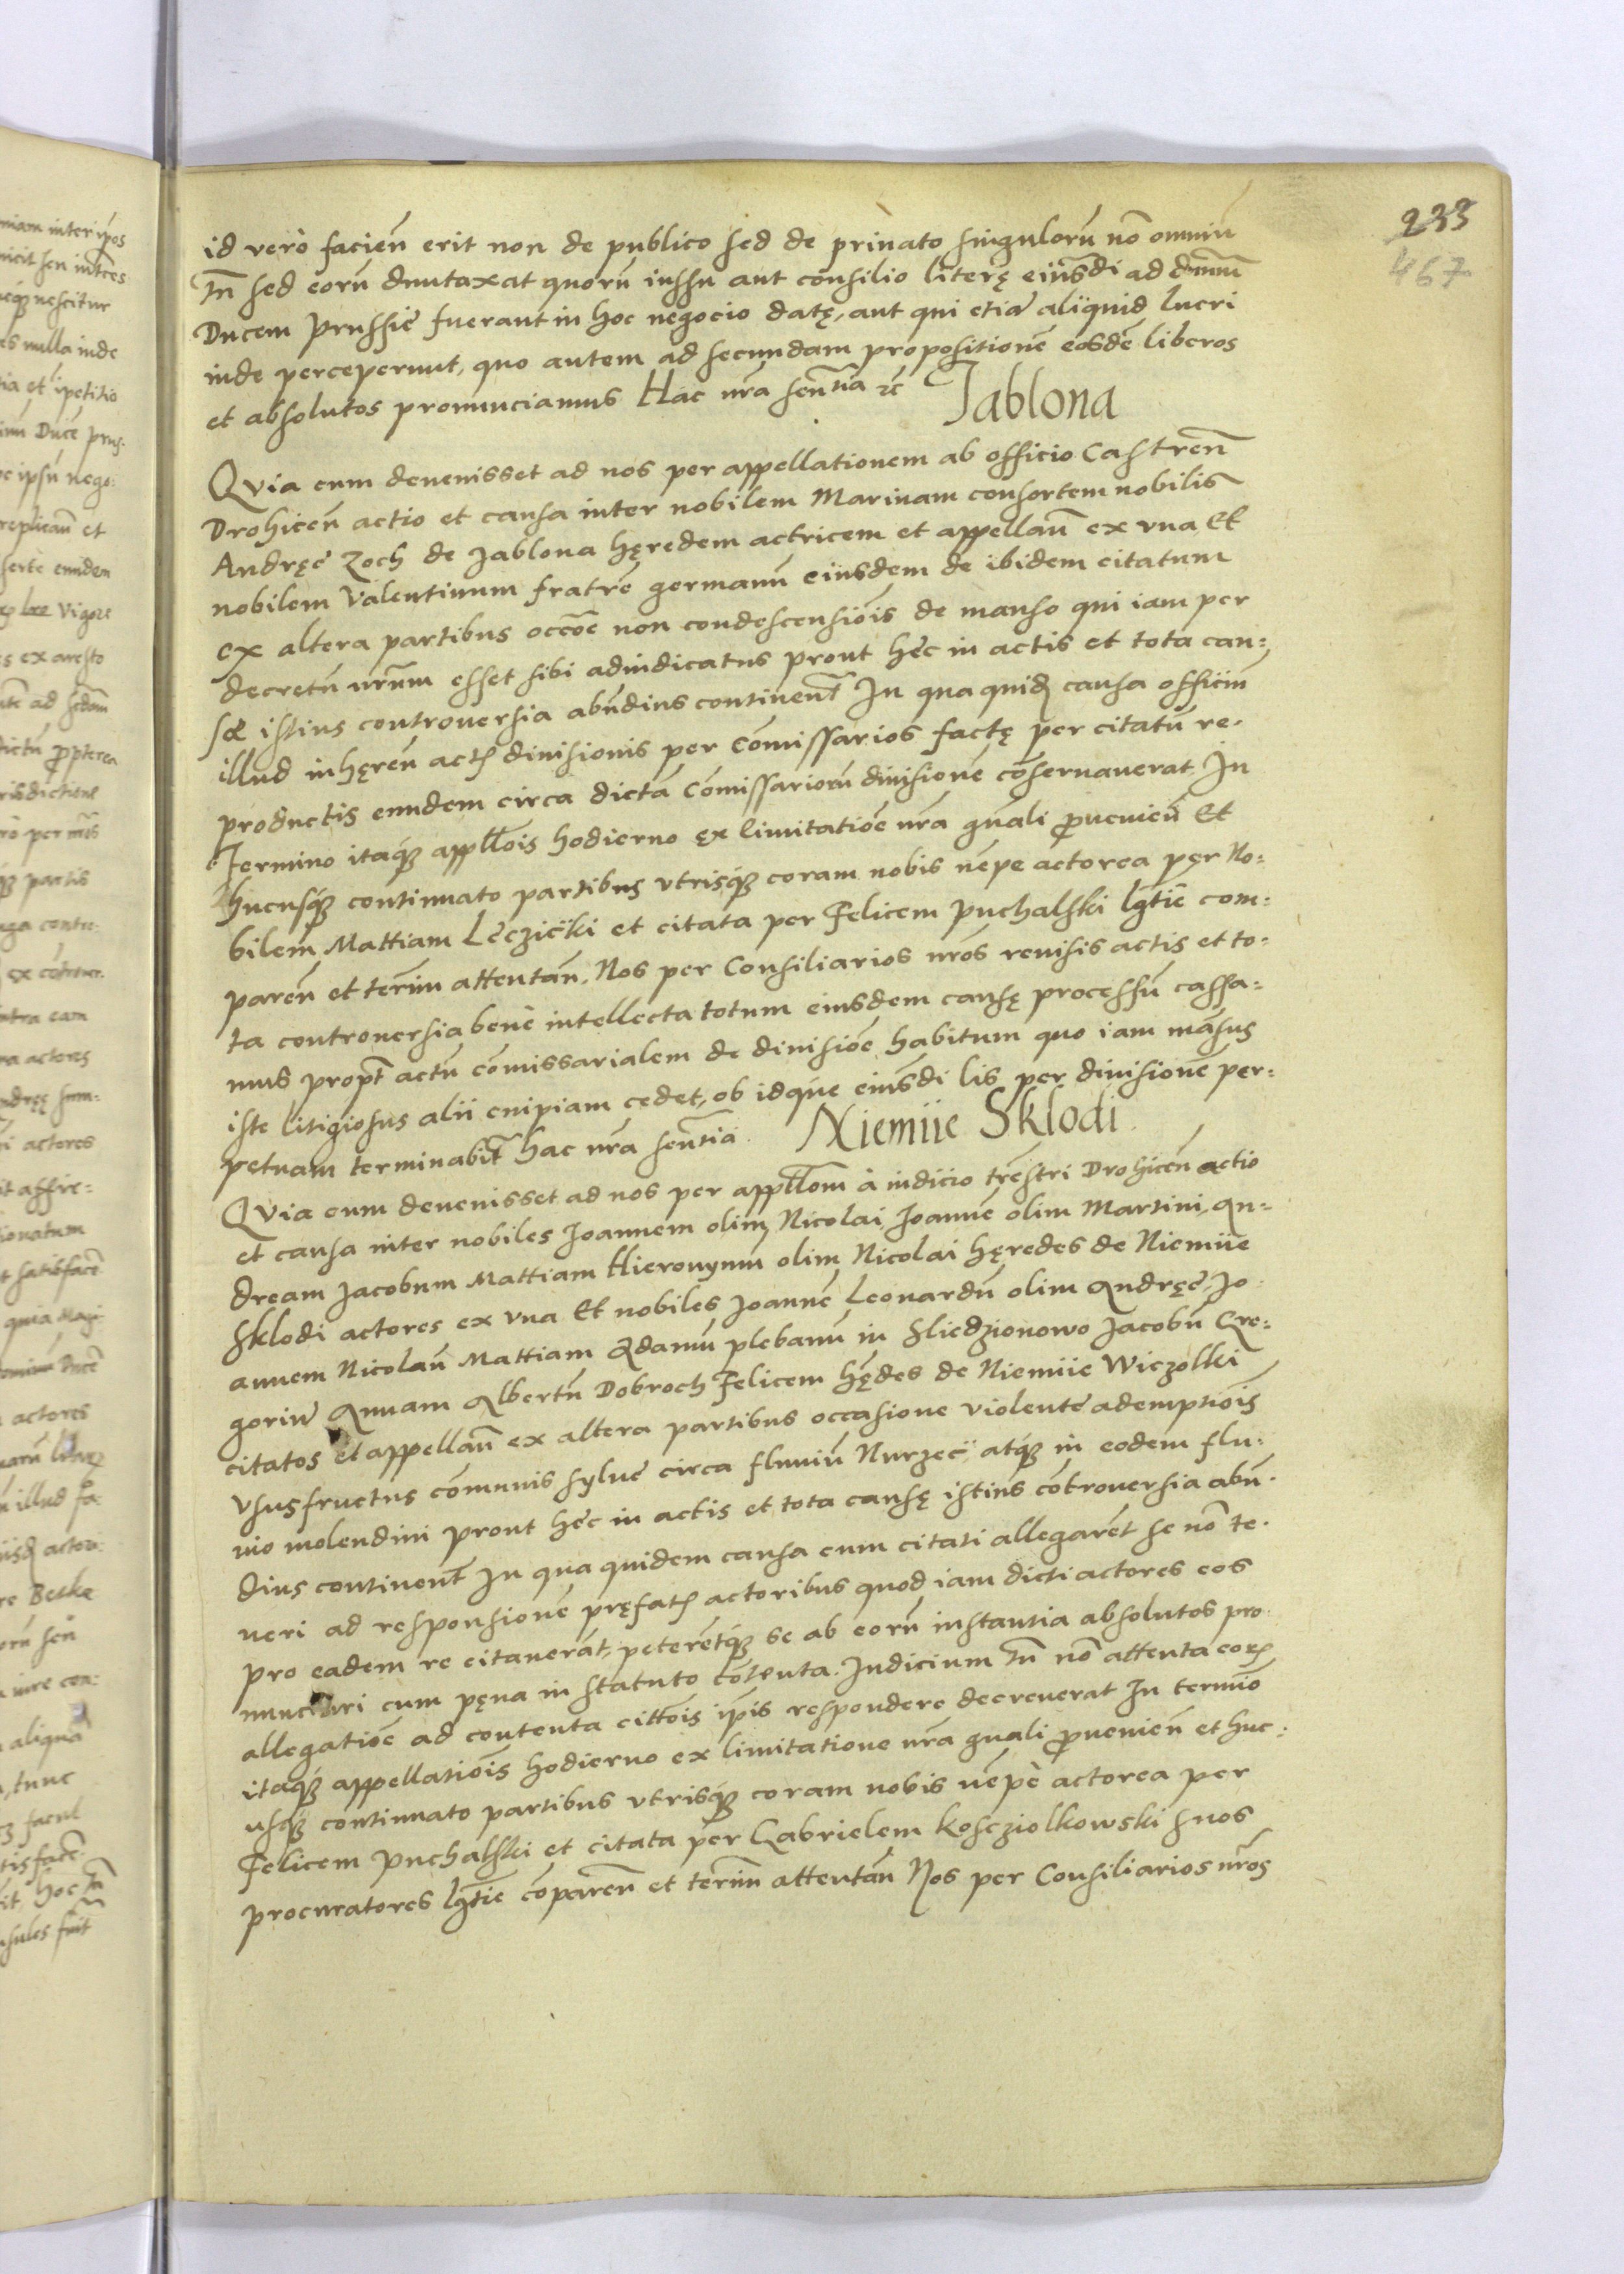 233
467
id verò facień erit non de publico sed de priuato singulorũ nõ omniũ
tñ sed eorũ duntaxat quorũ iussu aut consilio literę eiusdi ad dnum
Ducem Prussię fuerant in hoc negocio datę, aut qui etiã aliquid lucri
inde perceperunt, quo autem ad secundam propositionẽ eosdẽ liberos
et absolutos pronunciamus Hac nra sentia etc
Jablona
Qvia cum deuenisset ad nos per appellationem ab officio Castreñ
Drohiceń actio et causa inter nobilem Marinam consortem nobilis
Andręę Zoch de Jablona hęredem actricem et appellañ ex vna Et
nobilem Valentinum fratrẽ germanũ eiusdem de ibidem citatum
ex altera partibus occõe non condescensiõis de manso qui iam per
decretũ nrum esset sibi adiudicatus prout hęc in actis et tota cau-
sę istius controuersia abundius continent In qua quid causa officiũ
illud inhęreñ actis diuisionis per Comissarios factę per citatũ re-
productis eundem circa dictã Comissariorũ diuisionẽ conseruauerat In
Termino itaque appllois hodierno ex limitatiõe nra gnali proueneñ Et
hucusque continuato partibus vtrisque coram nobis nẽpe actorea per No-
bilem Mattiam Lęczicki et citata per Felicem Puchalski lgtie com-
pareñ et termĩ attentañ, Nos per Consiliarios nros reuisis actis et to-
ta controuersia benè intellecta totum eiusdem causę processũ cassa-
mus propt actũ comissarialem de diuisiõe habitum quo iam mãsus
iste litigiosus alii cuipiam cedet, ob idque eiusdi lis per diuisionẽ per-
petuam terminabit hac nra sentia.
Niemiie Sklodi.
Qvia cum deuenisset ad nos per appllom à iudicio trestri Drohiceń actio
et causa inter nobiles Joannem olim Nicolai, Joannẽ olim Martini, An-
dream Jacobum Mattiam Hieronymũ olim Nicolai hęredes de Niemiie
Sklodi actores ex vna Et nobiles Joannẽ Leonardũ olim Andręę, Jo-
annem Nicolaũ Mattiam Adamũ plebanũ in Sliedzionowo Jacobũ Gre-
goriũ Annam Albertũ Dobroch Felicem hędes de Niemiie Wiczolki
citatos et appellañ ex altera partibus occasione violentę ademptiõis
vsusfructus communis syluę circa fluuiũ Nurzec atque in eodem flu-
uio molendini prout hęc in actis et tota causę istius cõtrouersia abũ-
dius continent In qua quidem causa cum citati allegarẽt se nõ te-
neri ad responsionẽ pręfatis actoribus quod iam dicti actores eos
pro eadem re citauerãt, peterẽtque se ab eorũ instantia absolutos pro-
nunciari cum pęna in statuto cõtenta. Judicium tñ nõ attenta eorũ
allegatiõe ad contenta cittõis ipsis respondere decreuerat In termiõ
itaque appellatiõis hodierno ex limitatione nra gnali proueneñ et huc-
usque continuato partibus vtrisque coram nobis nẽpè actorea per
Felicem Puchalski et citata per Gabrielem Kosciolkowski suos
procuratores lgtie cõpareñ et termĩ attentañ Nos per Consiliarios nros